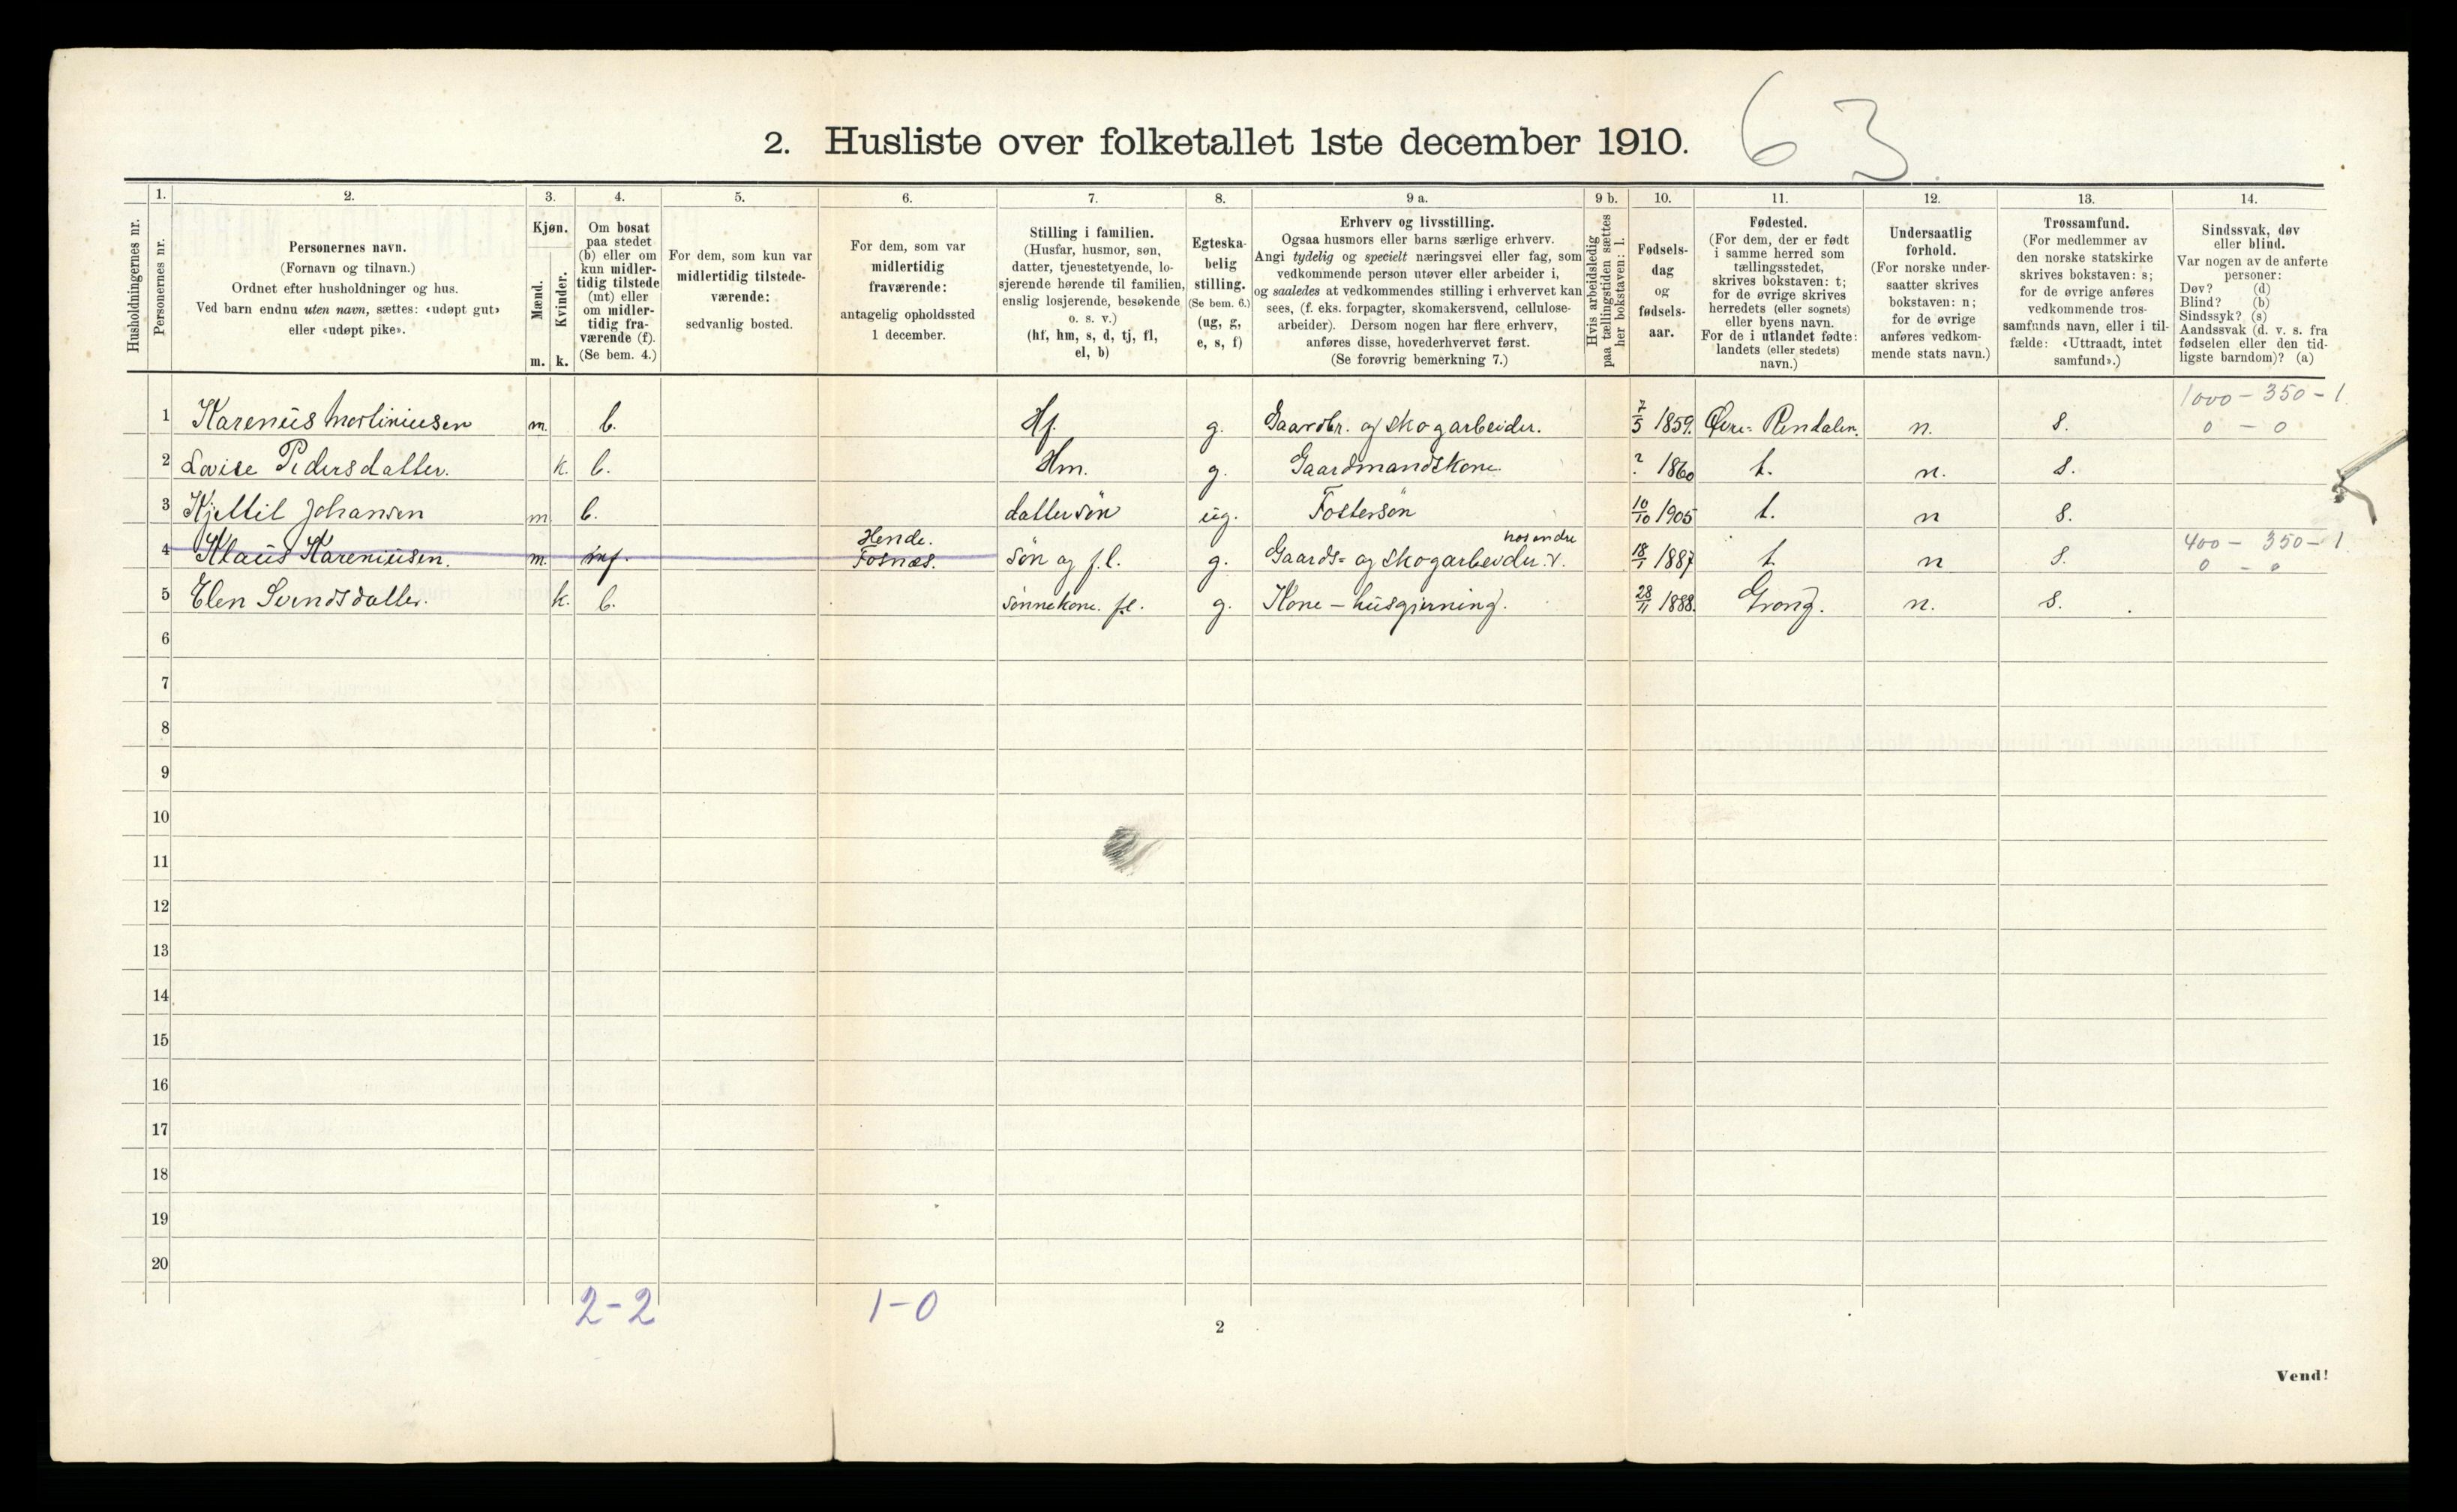 63
2. Husliste over folketallet 1ste december 1910.
Husholdningernes nr.
1.
Personernes nr.
2.
Personernes navn.
(Fornavn og tilnavn.)
Ordnet efter husholdninger og hus.
Ved barn endnu uten navn, sættes: «udøpt gut»
eller «udøpt pike».
3.
Kjøn.
Mænd.
Kvinder.
m. k.
4.
Om bosat
paa stedet
(b) eller om
kun midler-
tidig tilstede
(mt) eller
om midler-
tidig fra-
værende (f).
(Se bem. 4.)
5.
For dem, som kun var
midlertidig tilstede-
værende:
sedvanlig bosted.
6.
For dem, som var
midlertidig
fraværende:
antagelig opholdssted
1 december.
7.
Stilling i familien.
(Husfar, husmor, søn,
datter, tjenestetyende, lo-
sjerende hørende til familien,
enslig losjerende, besøkende
o. s. v.)
(hf, hm, s, d, tj, fl,
el, b)
8.
Egteska-
belig
stilling.
(Se bem. 6.)
(ug, g,
e, s, f)
9 a.
Erhverv og livsstilling.
Ogsaa husmors eller barns særlige erhverv.
Angi tydelig og specielt næringsvei eller fag, som
vedkommende person utøver eller arbeider i,
og saaledes at vedkommendes stilling i erhvervet kan
sees, (f. eks. forpagter, skomakersvend, cellulose-
arbeider). Dersom nogen har flere erhverv,
anføres disse, hovederhvervet først.
(Se forøvrig bemerkning 7.)
9 b.
Hvis arbeidsledig
paa tællingstiden sættes
her bokstaven: l.
10.
Fødsels-
dag
og
fødsels-
aar.
11.
Fødested.
(For dem, der er født
i samme herred som
tællingsstedet,
skrives bokstaven: t;
for de øvrige skrives
herredets (eller sognets)
eller byens navn.
For de i utlandet fødte:
landets (eller stedets)
navn.)
12.
Undersaatlig
forhold.
(For norske under-
saatter skrives
bokstaven: n;
for de øvrige
anføres vedkom-
mende stats navn.)
13.
Trossamfund.
(For medlemmer av
den norske statskirke
skrives bokstaven: s;
for de øvrige anføres
vedkommende tros-
samfunds navn, eller i til-
fælde: «Uttraadt, intet
samfund».)
14.
Sindssvak, døv
eller blind.
Var nogen av de anførte
personer:
Døv? (d)
Blind? (b)
Sindssyk? (s)
Aandssvak (d. v. s. fra
fødselen eller den tid-
ligste barndom)? (a)
1000 - 350 - 1
1 Karenius Martiniusen m. b. Hf. g. Gaardbr. og skogarbeider. 7/5 1859. Øvre-Rendalen. n. s. 0 - 0
2 Lovise Pedersdatter. k. b. Hm. g. Gaardmandskone. ? 1860 t. n. s.
3 Kjettil Johansen m b. dattersön ug. Fostersön 10/10 1905 t. n s.
Hende. hos andre 400 - 350 - 1
4 Klaus Kareniusen. m. mf. Fosnæs. sön og f.l. g. Gaards- og skogarbeider. v. 18/1 1887 t. n s. 0 - 0
5 Elen Svendsdatter. k. b. sönnekone. f.l. g. Kone - husgjerning. 28/11 1888. Grong. n. s.
6
7
8
9
10
11
12
13
14
15
16
17
18
19
20
2-2 1-0
2
Vend!